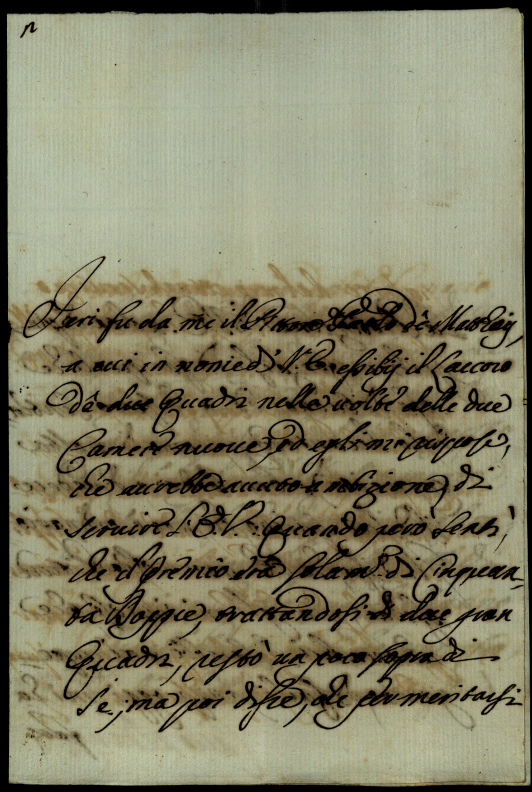 Jeri fu da me il de Matthęis,
a cui in nome di V. E. essibij il lavoro
de due Quadri nelle volte delle due
Camere nuove, ed egli mi rispose,
che avrebbe avuto ambizione, di
servire Quando però sentì,
che il premio era solam.te di Cinquan-
ta Doppie, trattandosi di due gran
Quadri, restò un poco sopra di
Se, ma poi disse, che per meritarsi